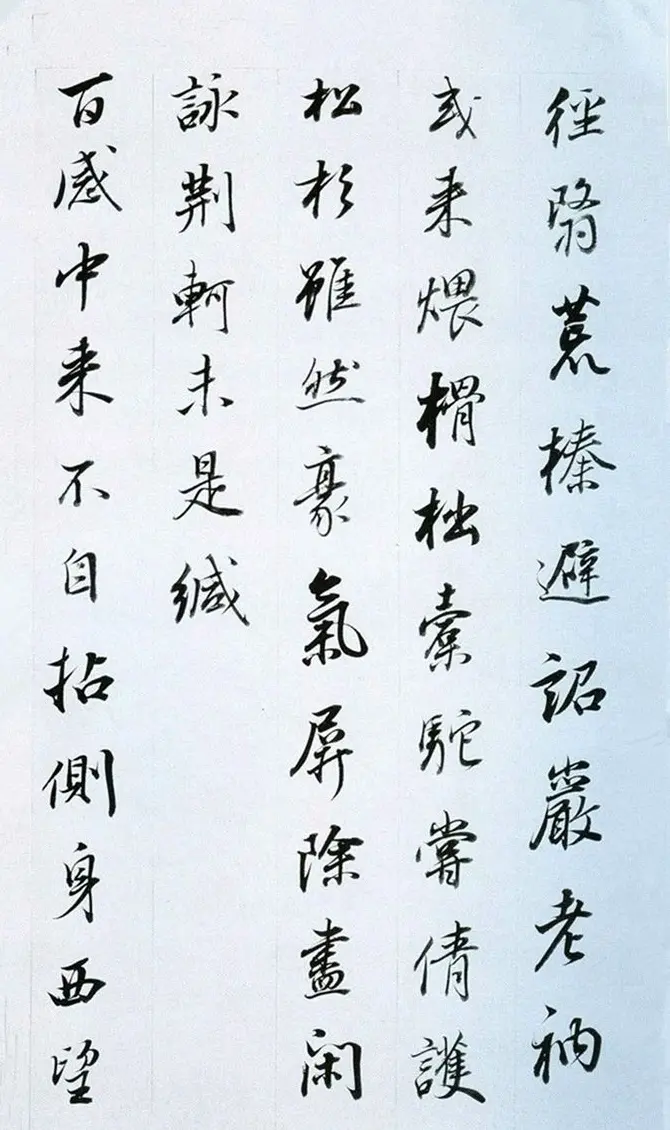 徑翳荒榛避詔巖老衲
或来煨榾柮橐駝嘗倩護
松杉雖然豪氣屏除盡閑
詠荆軻未是緘
百感中来不自拈側身西望